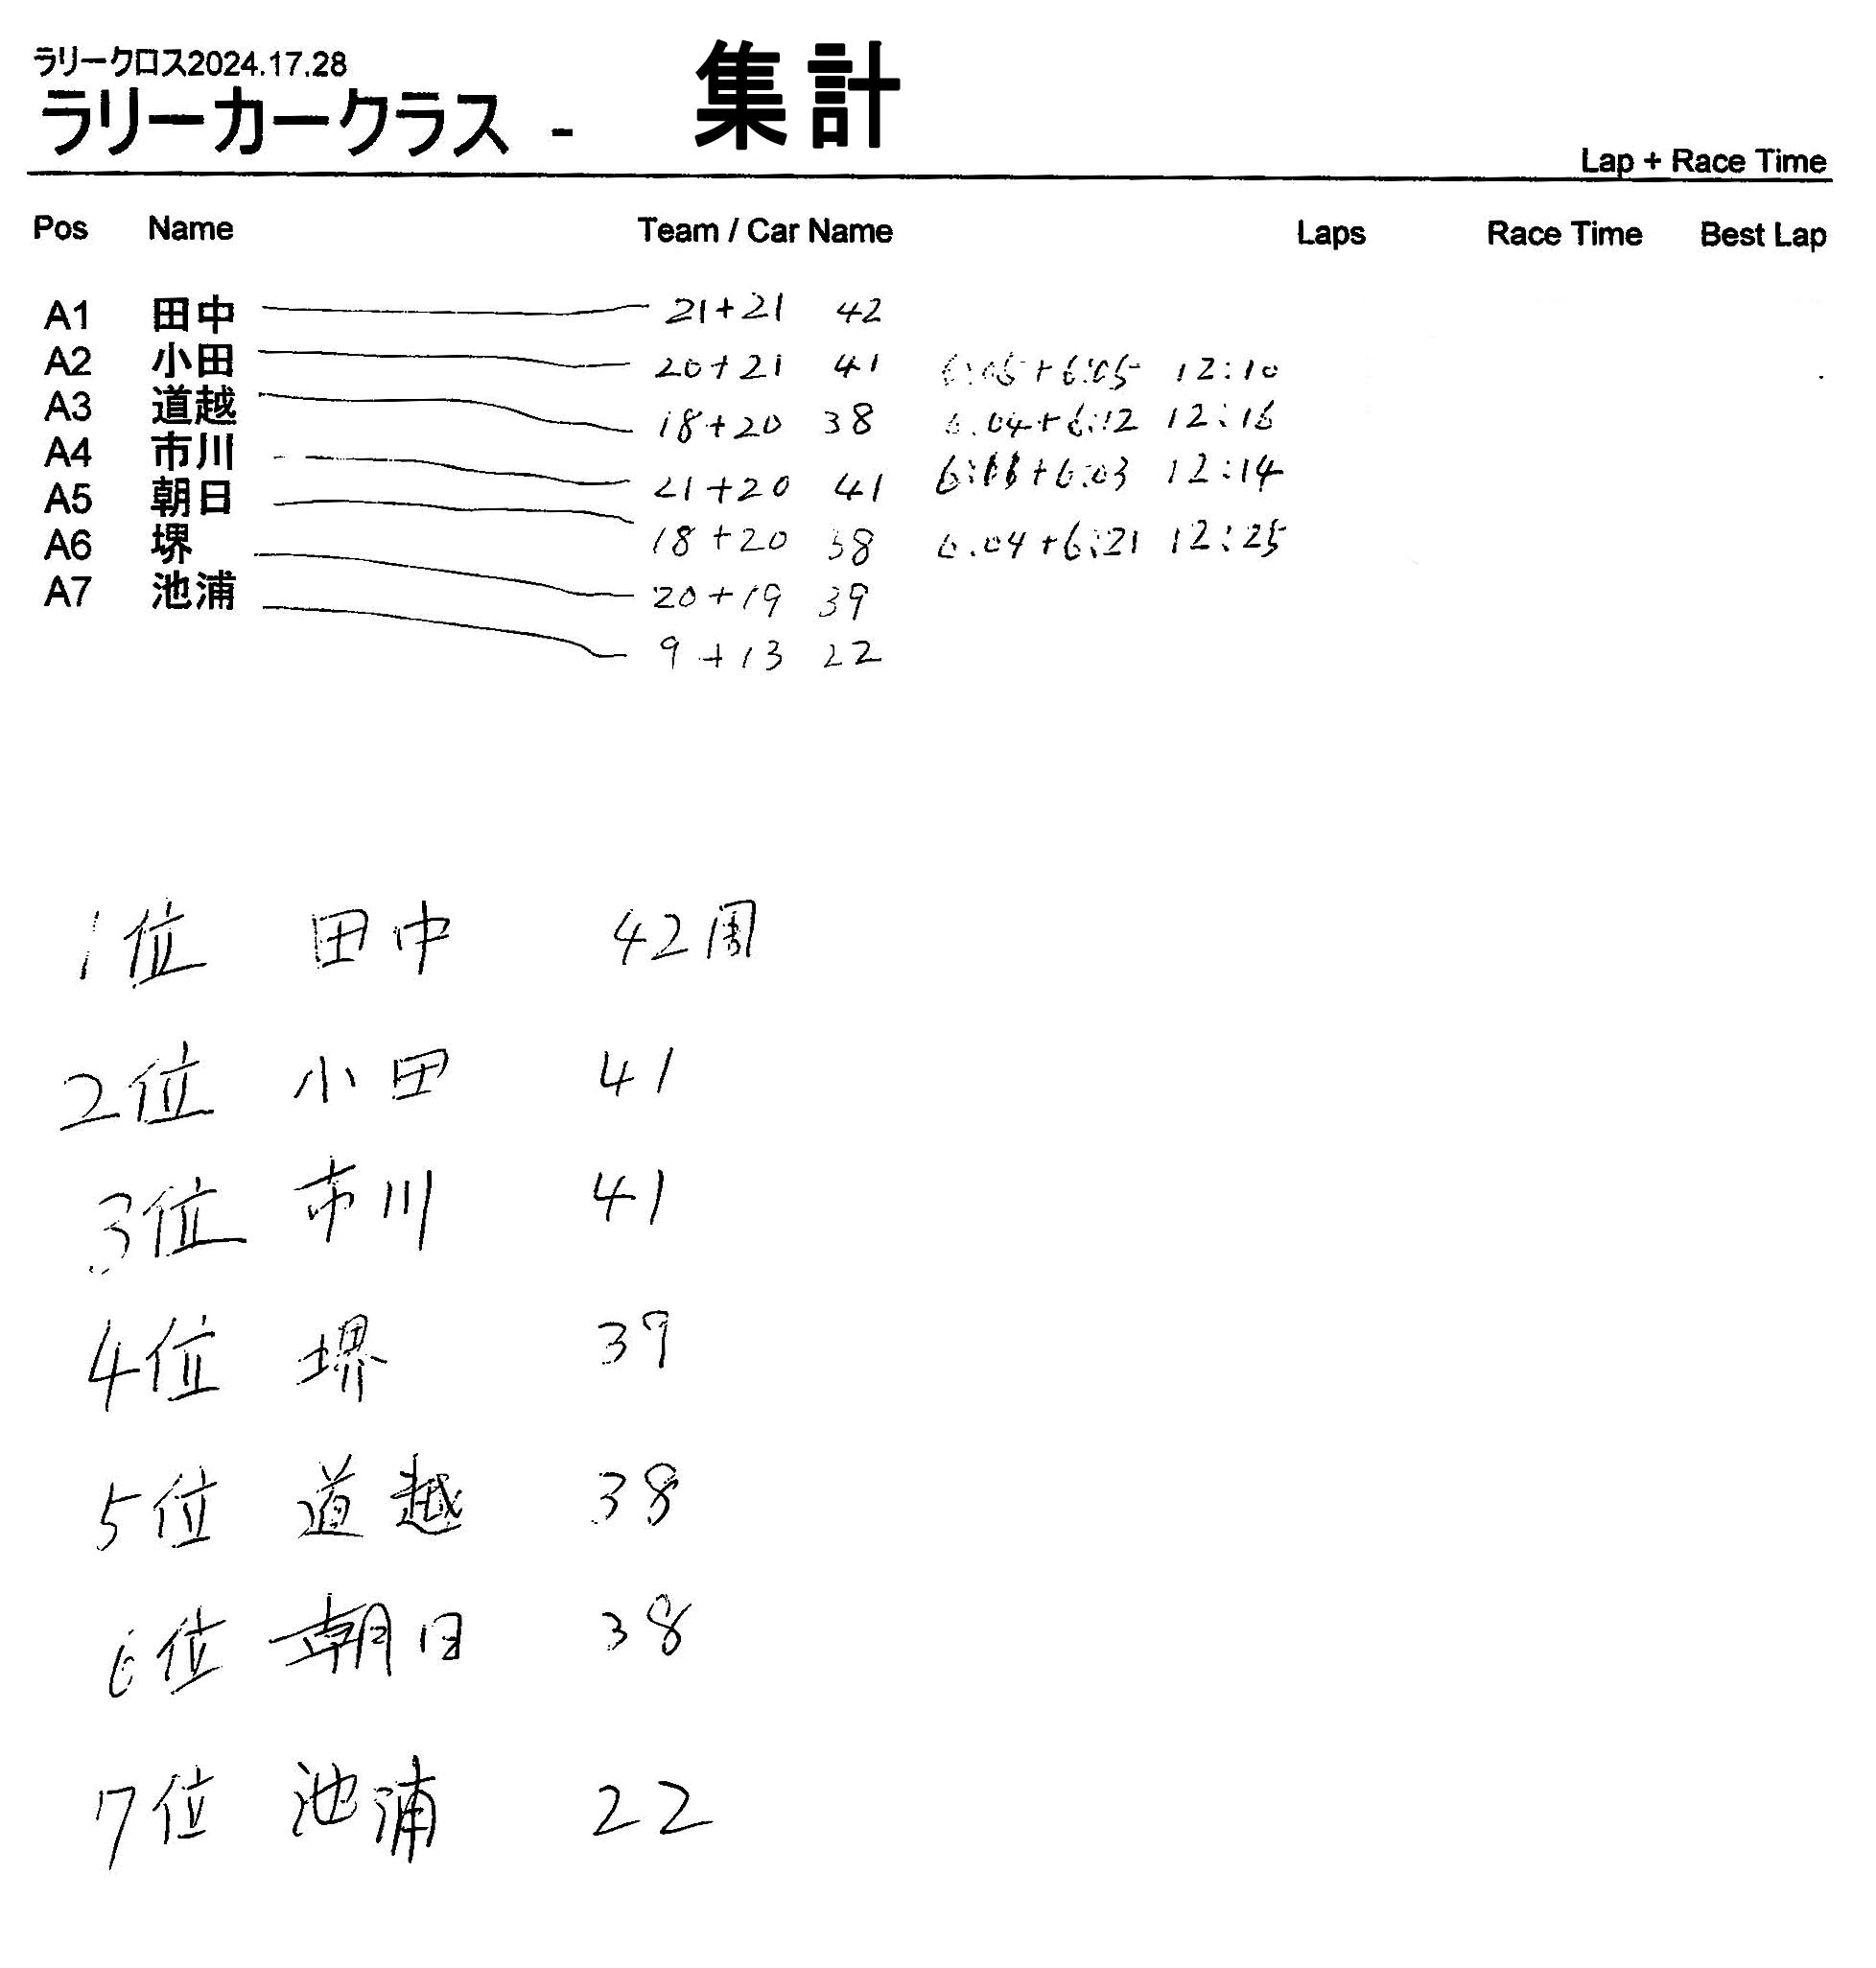 ラリークロス2024.17.28
ラリーカークラス - 集計
Lap + Race Time
Pos Name Team / Car Name Laps Race Time Best Lap
A1 田中 21+21 42
A2 小田 20+21 41 6:05+6:05 12:10
A3 道越 18+20 38 6.04+6:12 12:16
A4 市川 21+20 41 6:11+6:03 12:14
A5 朝日 18+20 38 6.04+6:21 12:25
A6 堺 20+19 39
A7 池浦 9+13 22
1位 田中 42周
2位 小田 41
3位 市川 41
4位 堺 39
5位 道越 38
6位 朝日 38
7位 池浦 22